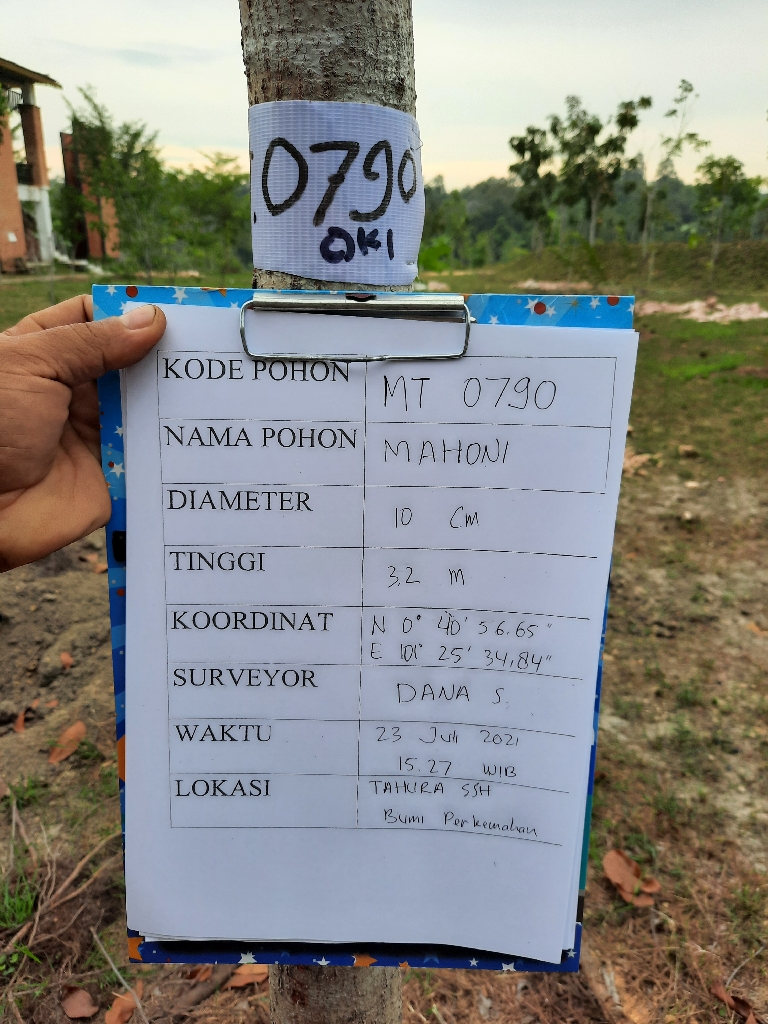 0790
OKI
KODE POHON MT 0790
NAMA POHON MAHONI
DIAMETER 10 CM
TINGGI 3,2 M
KOORDINAT N 0° 40' 56.65"
E 101° 25' 34,84"
SURVEYOR DANA S
WAKTU 23 Juli 2021
15.27 WIB
LOKASI TAHURA SSH
Bumi Perkemahan